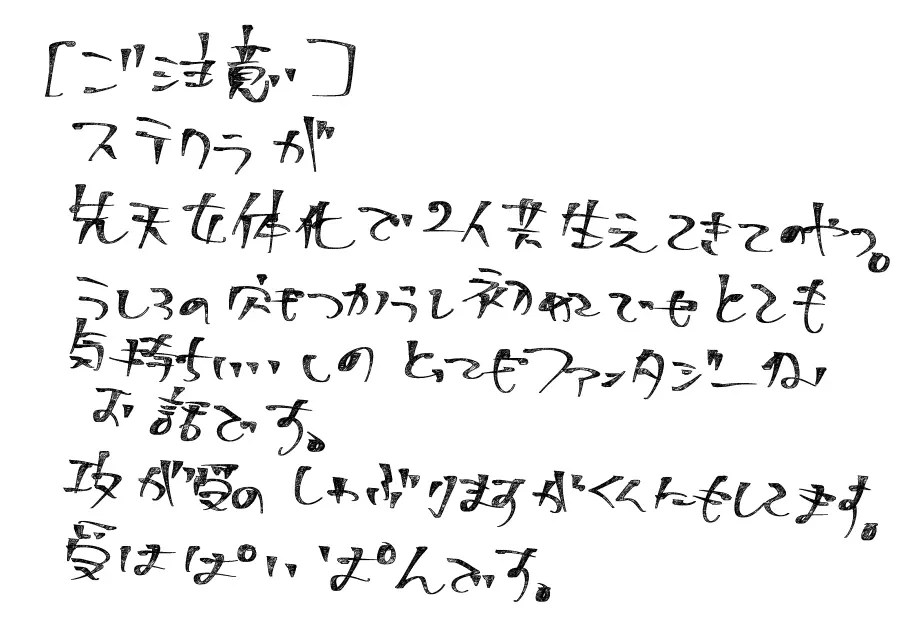 [ご注意]
ステクラが
先天女体化で2人共生えてきてのやつ。
うしろの穴もつかうし初めてでもとても
気持ちいいしの とってもファンタジーな
お話です。
攻が受の しゃぶりますがくんにもしてます。
受はぱいぱんです。